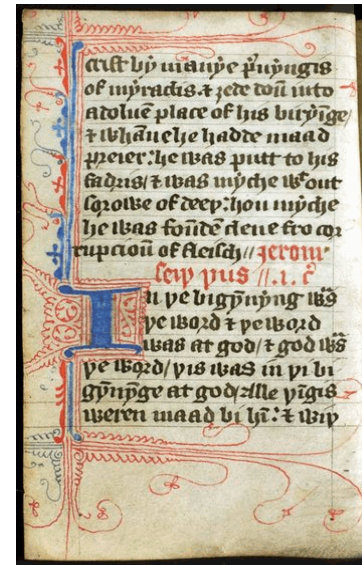 crist by manye p̃uyngis
of myraclis. ⁊ ȝede doũ into
adoluẽ place of his biryĩge/
⁊ whãne he hadde maad
preier: he was putt to his
fadris/ ⁊ was myche wͭout
sorowe of deeꝥ: hou myche
he was foũdẽ clene fro cor
rupcioũ of fleisch// Jerom
seiþ þus //.1. c̃
In þe bigyñyng wͣs
þe word ⁊ þe word
was at god/ ⁊ god wͣs
þe word/ þis was in þi bi
gyñynge at god/ alle þĩgis
weren maad bi hĩ: ⁊ wiþ